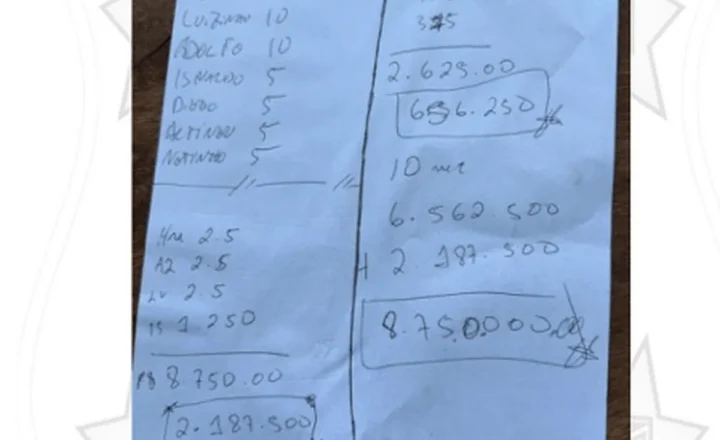 LUIZINHO 10
ADOLFO 10
ISNALDO 5
DUDO 5
ALTINEU 5
NETINHO 5
2.5
A2 2.5
LV 2.5
IS 1 250
R$ 8 750.00
2.187.500
2.625.00
656.250
10
6.562.500
+ 2 187.500
8.750.000,00